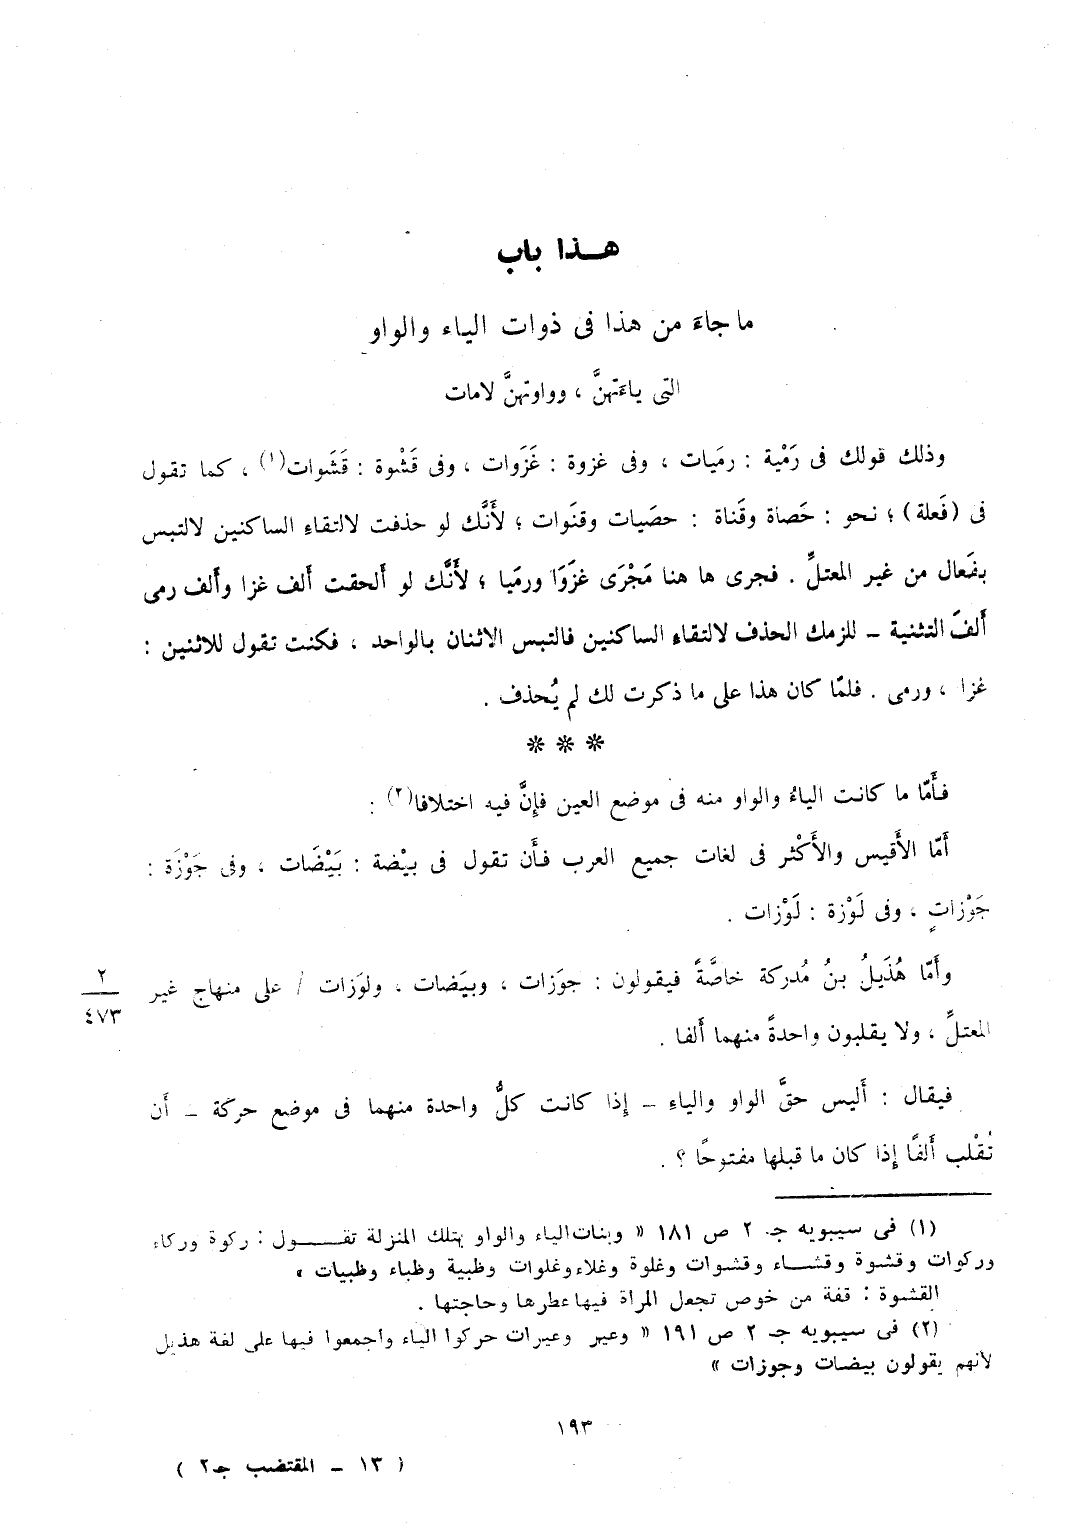 هـذا باب
ما جاءَ من هذا فى ذوات الياء والواو
التى ياءَتهنَّ ، وواوتهنَّ لامات
وذلك قولك فى رَمْية : رمَيات ، وفى غزوة : غَزَوات ، وفى قَشْوة : قَشَوات(١) ، كما تقول
فى (فَعلة) ؛ نحو : حَصاة وقَناة : حصَيات وقنَوات ؛ لأَنَّك لو حذفت لالتقاءِ الساكنين لالتبس
بفَعال من غير المعتلِّ . فجرى ها هنا مَجْرَى غزَوَا ورميا ؛ لأَنَّك لو ألحقت أَلف غزا وأَلف رمى
أَلفَ التثنية – للزمك الحذف لالتقاء الساكنين فالتبس الاثنان بالواحد ، فكنت تقول للاثنين :
غزا ، ورمى . فلمّا كان هذا على ما ذكرت لك لم يُحذف .
* * *
فأَمّا ما كانت الياءُ والواو منه فى موضع العين فإِنَّ فيه اختلافا(٢) :
أَمّا الأَقيس والأَكْثر فى لغات جميع العرب فأَن تقول فى بيْضة : بَيْضَات ، وفى جَوْزَة :
جَوْزاتٍ ، وفى لَوْزة : لَوْزات .
وأَمّا هُذَيلُ بنُ مُدركة خاصَّةً فيقولون : جوَزات ، وبيَضات ، ولوَزات / على منهاج غير
٢
٤٧٣
المعتلِّ ، ولا يقلبون واحدةً منهما أَلفا .
فيقال : أَليس حقَّ الواو والياءِ – إِذا كانت كلُّ واحدة منهما فى موضع حركة – أَن
تُقْلب أَلفًا إِذا كان ما قبلها مفتوحًا ؟ .
(١) فى سيبويه جـ ٢ ص ١٨١ « وبنات الياء والواو بتلك المنزلة تقـــول : ركوة وركاء
وركوات وقشوة وقشـاء وقشوات وغلوة وغلاء وغلوات وظبية وظباء وظبيات »
القشوة : قفة من خوص تجعل المرأة فيها عطرها وحاجتها .
(٢) فى سيبويه جـ ٢ ص ١٩١ « وعير وعيرات حركوا الياء واجمعوا فيها على لغة هذيل
لأنهم يقولون بيضات وجوزات »
١٩٣
( ١٣ – المقتضب جـ٢ )